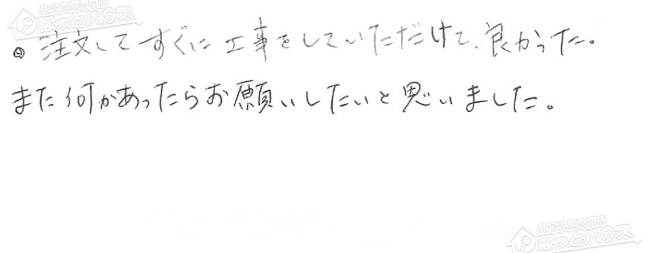 ◎ 注文してすぐに工事をしていただけて、良かった。
また何かあったらお願いしたいと思いました。